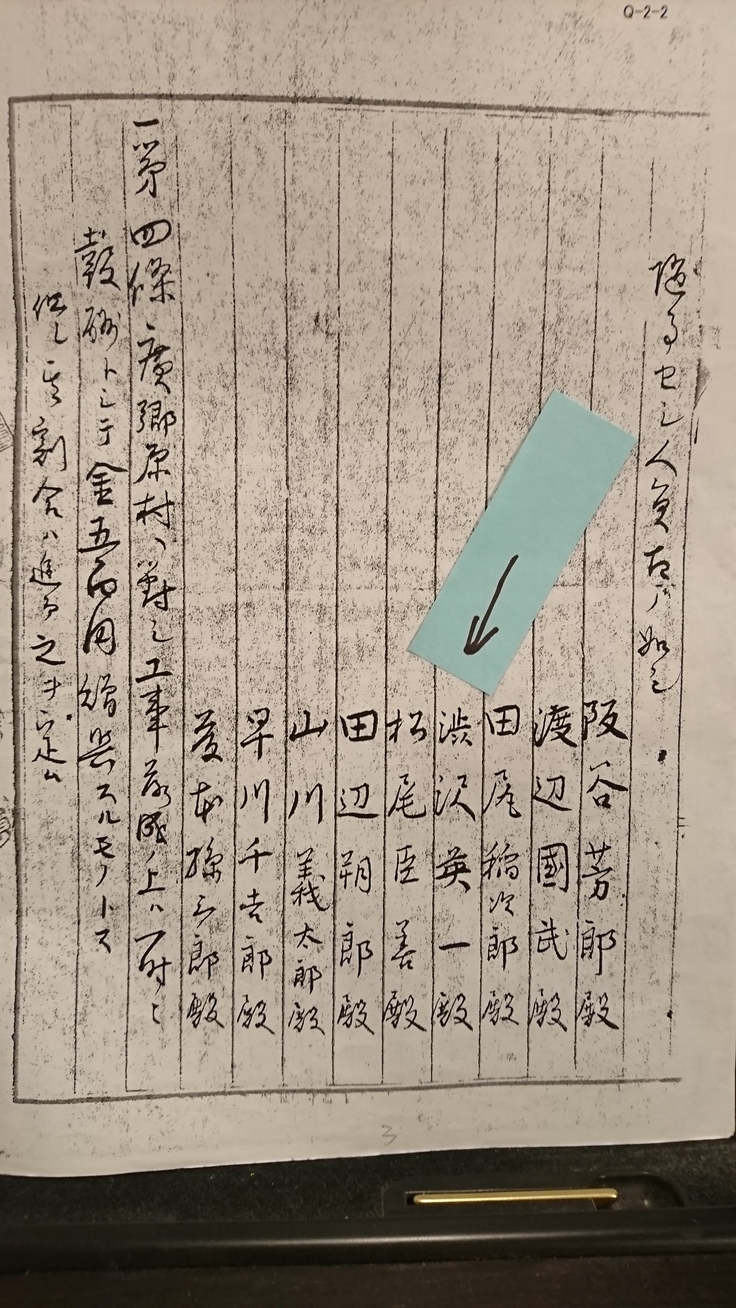 Q-2-2
随而セシ人員左ノ如シ
阪谷芳郎殿
渡辺國武殿
田尾稲次郎殿
渋沢英一殿
松尾臣善殿
田辺朔郎殿
山川義太郎殿
早川千吉郎殿
孫三郎殿
一第四條廣郷原村ハ對シ工事落成ノ上ハ一時ニ
トシテ金五百円贈与スルモノトス
但シ其割合ハ追而之ヲ定ム
3